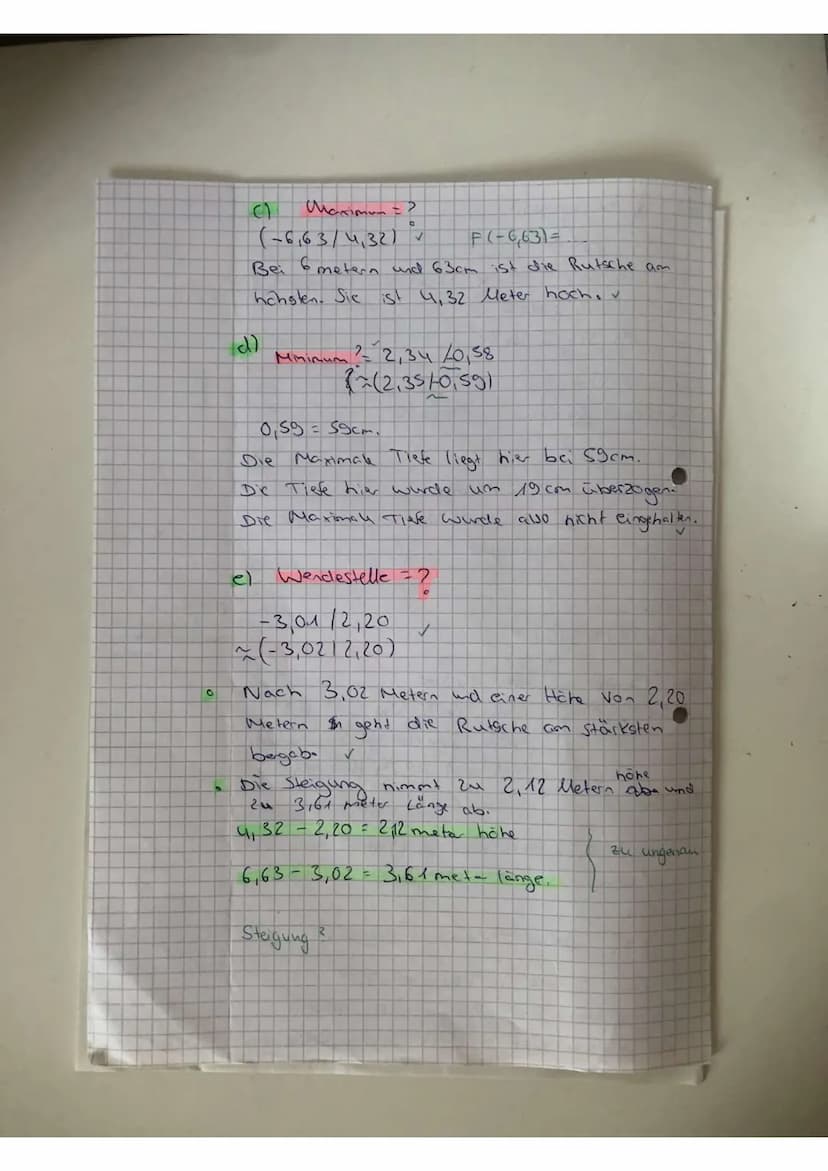 c) Maximum = ?
(-6,63/4,32) ✓ F(-6,63)=...
Bei 6 metern und 63cm ist die Rutsche am
höhsten. Sie ist 4,32 Meter hoch. ✓
d) Minimum? = 2,34 /-0,58
≈(2,35/-0,59)
0,59 = 59cm.
Die Maximale Tiefe liegt hier bei 59cm.
Die Tiefe hier wurde um 19 cm überzogen.
Die Maximale Tiefe wurde also nicht eingehalten.
✓
e) Wendestelle = ?
-3,01 /2,20 ✓
≈(-3,02|2,20)
Nach 3,02 Metern und einer Höhe von 2,20
Metern geht die Rutsche am stärksten
bergab. ✓
Die Steigung nimmt zu 2,12 Metern höhe und
zu 3,61 meter Länge ab.
4,32 - 2,20 = 2,12 meter höhe
zu ungenau
6,63 - 3,02 = 3,61 meter länge.
Steigung?